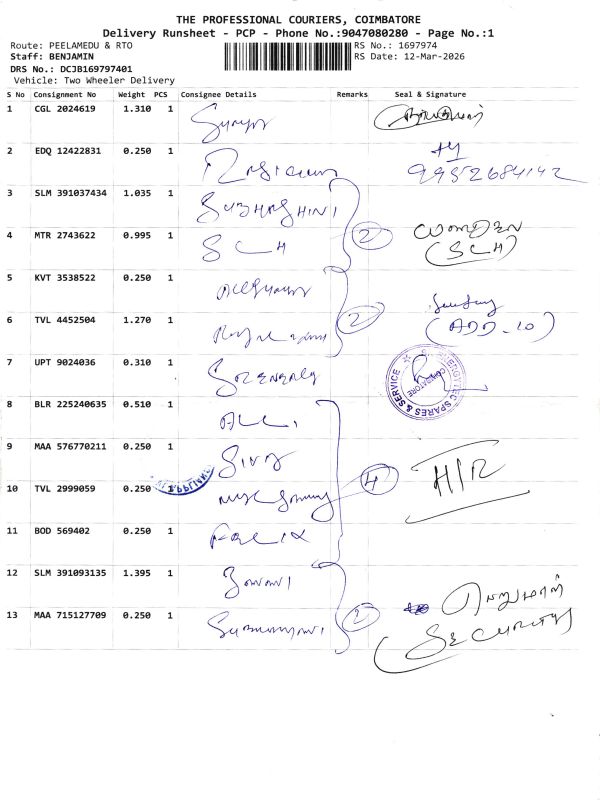 THE PROFESSIONAL COURIERS, COIMBATORE
Delivery Runsheet - PCP - Phone No.:9047080280 - Page No.:1
Route: PEELAMEDU & RTO RS No.: 1697974
Staff: BENJAMIN RS Date: 12-Mar-2026
DRS No.: DCJB169797401
Vehicle: Two Wheeler Delivery
S No Consignment No Weight PCS Consignee Details Remarks Seal & Signature
1 CGL 2024619 1.310 1 Surya
2 EDQ 12422831 0.250 1
9952684142
3 SLM 391037434 1.035 1 SUBHASHINI
4 MTR 2743622 0.995 1 SCH 2
(SCH)
5 KVT 3538522 0.250 1
6 TVL 4452504 1.270 1 2 (ADD-10)
7 UPT 9024036 0.310 1 SPARES & SERVICE COIMBATORE
8 BLR 225240635 0.510 1
9 MAA 576770211 0.250 1 Siva
10 TVL 2999059 0.250 1 4 H/R
11 BOD 569402 0.250 1 FELIX
12 SLM 391093135 1.395 1
13 MAA 715127709 0.250 1 2 SECURITY